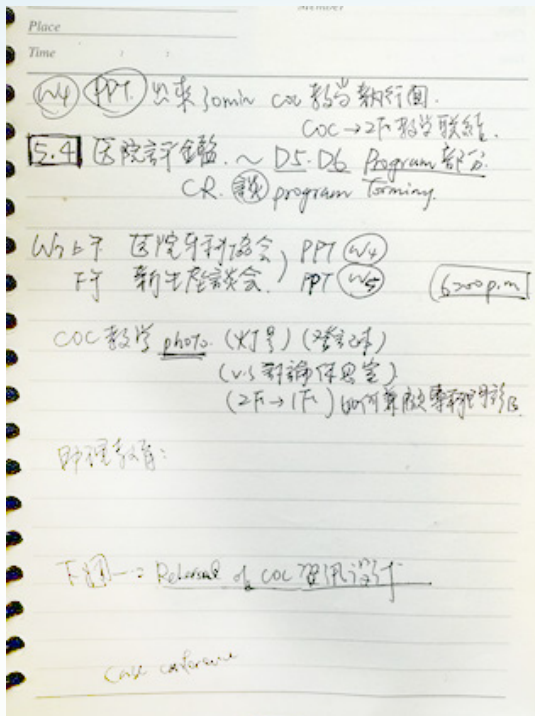 Member
Place
Time
W4 PPT 出來 30min COC 教学執行面.
COC→2F 教学联結.
5.4 医院評鑑. ~ D5. D6 Program 部分.
CR. 談 program
W5 上午 医院牙科協会 PPT W4
下午 新生座談会. PPT W5
6:00 p.m
COC 教学 photo. (灯号) (登記本)
(v.s 討論休息室)
(2F→1F) 如何兼顧
教育:
下週一: Rehersal of COC 資訊設計
Case conference